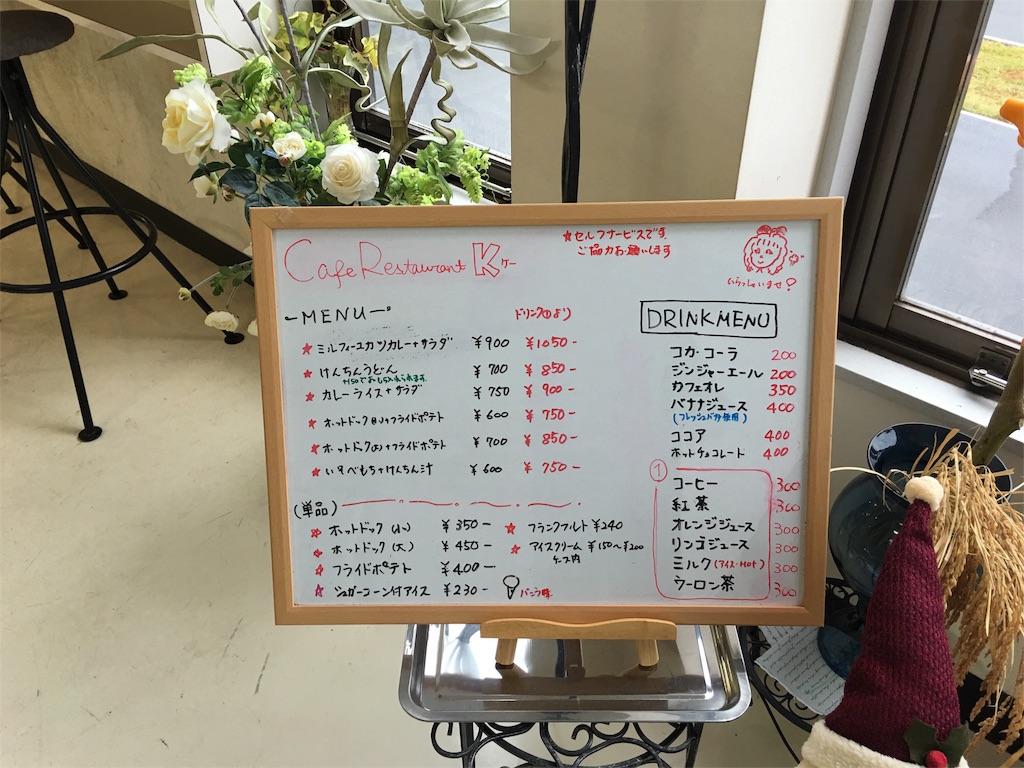 Cafe Restaurant K ケー
★セルフサービスです
ご協力お願いします
いらっしゃいませ!
MENU
ドリンク①より
★ミルフィーユカツカレー+サラダ ¥900 ¥1050-
★けんちんうどん ¥700 ¥850-
★カレーライス+サラダ ¥750 ¥900-
★ホットドック(小)+フライドポテト ¥600 ¥750-
★ホットドック(大)+フライドポテト ¥700 ¥850-
★いそべもち+けんちん汁 ¥600 ¥750-
(単品)
★ホットドック(小) ¥350-
★ホットドック(大) ¥450-
★フライドポテト ¥400-
★シュガーコーン付アイス ¥230- バニラ味
★フランクフルト ¥240
★アイスクリーム ¥150〜¥200
ケース内
DRINK MENU
コカ・コーラ 200
ジンジャーエール 200
カフェオレ 350
バナナジュース 400
(フレッシュバナナ使用)
ココア 400
ホットチョコレート 400
①
コーヒー 300
紅茶 300
オレンジジュース 300
リンゴジュース 300
ミルク(アイス・Hot) 300
ウーロン茶 300